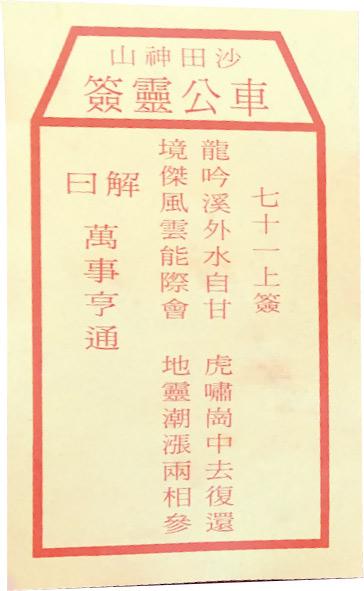 沙田神山
車公靈簽
七十一上簽
龍吟溪外水自甘 虎嘯崗中去復還
境傑風雲能際會 地靈潮漲兩相參
解曰
萬事亨通